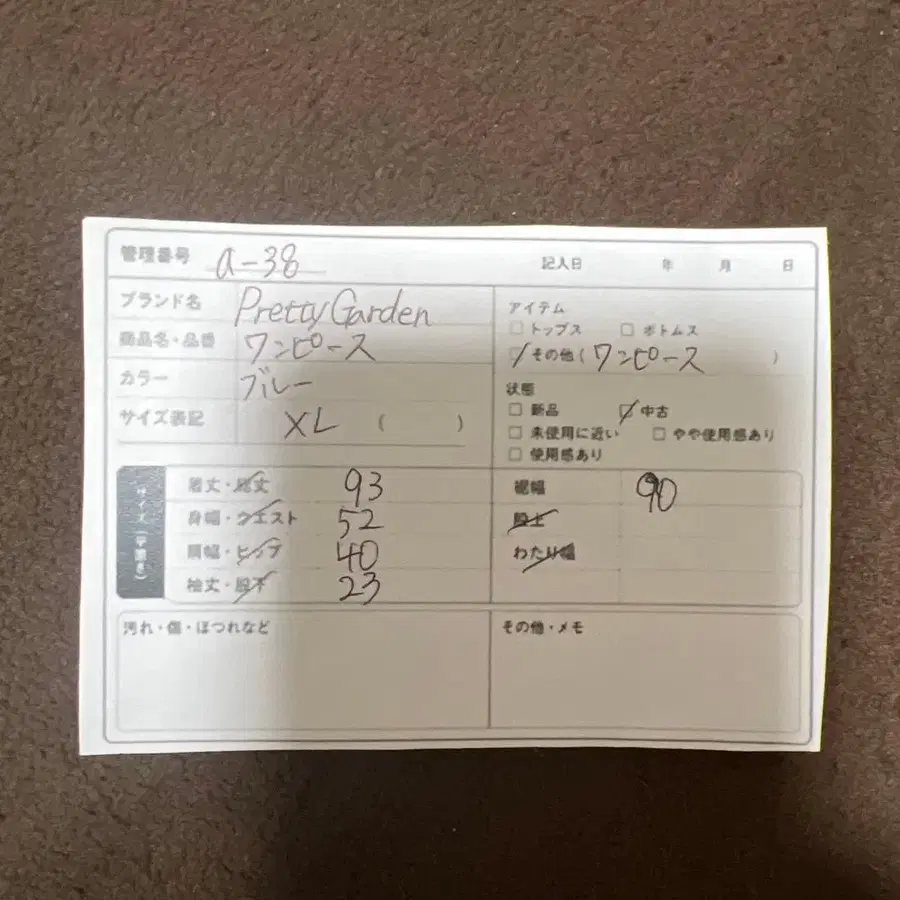 管理番号 a-38 記入日 年 月 日
ブランド名 Pretty Garden
商品名・品番 ワンピース
カラー ブルー
サイズ表記 XL ( )
アイテム
□ トップス □ ボトムス
□ その他 ( ワンピース )
状態
□ 新品 □ 中古
□ 未使用に近い □ やや使用感あり
□ 使用感あり
サイズ(平置き)
着丈・総丈 93
身幅・ウエスト 52
肩幅・ヒップ 40
袖丈・股下 23
裾幅 90
股上
わたり幅
汚れ・傷・ほつれなど
その他・メモ